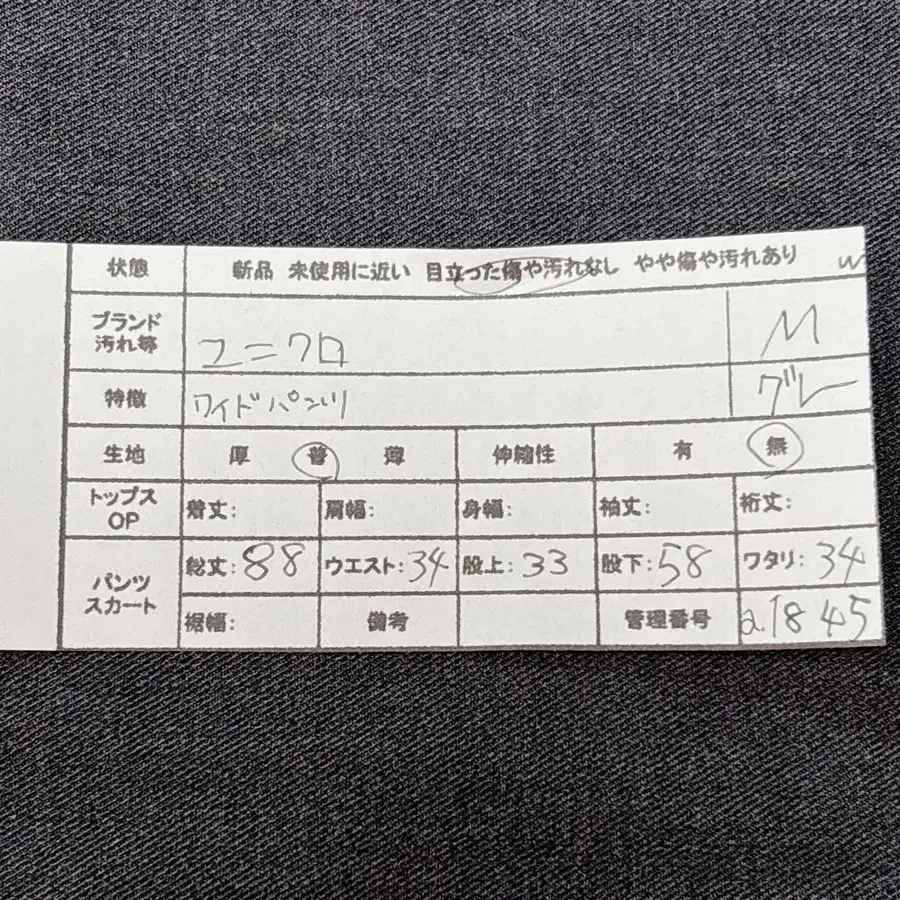 状態 新品 未使用に近い 目立った傷や汚れなし やや傷や汚れあり w
ブランド 汚れ等 ユニクロ M
特徴 ワイドパンツ グレー
生地 厚 普 薄 伸縮性 有 無
トップス OP 着丈: 肩幅: 身幅: 袖丈: 裄丈:
パンツ スカート 総丈:88 ウエスト:34 股上:33 股下:58 ワタリ:34
裾幅: 備考 管理番号 a.1845